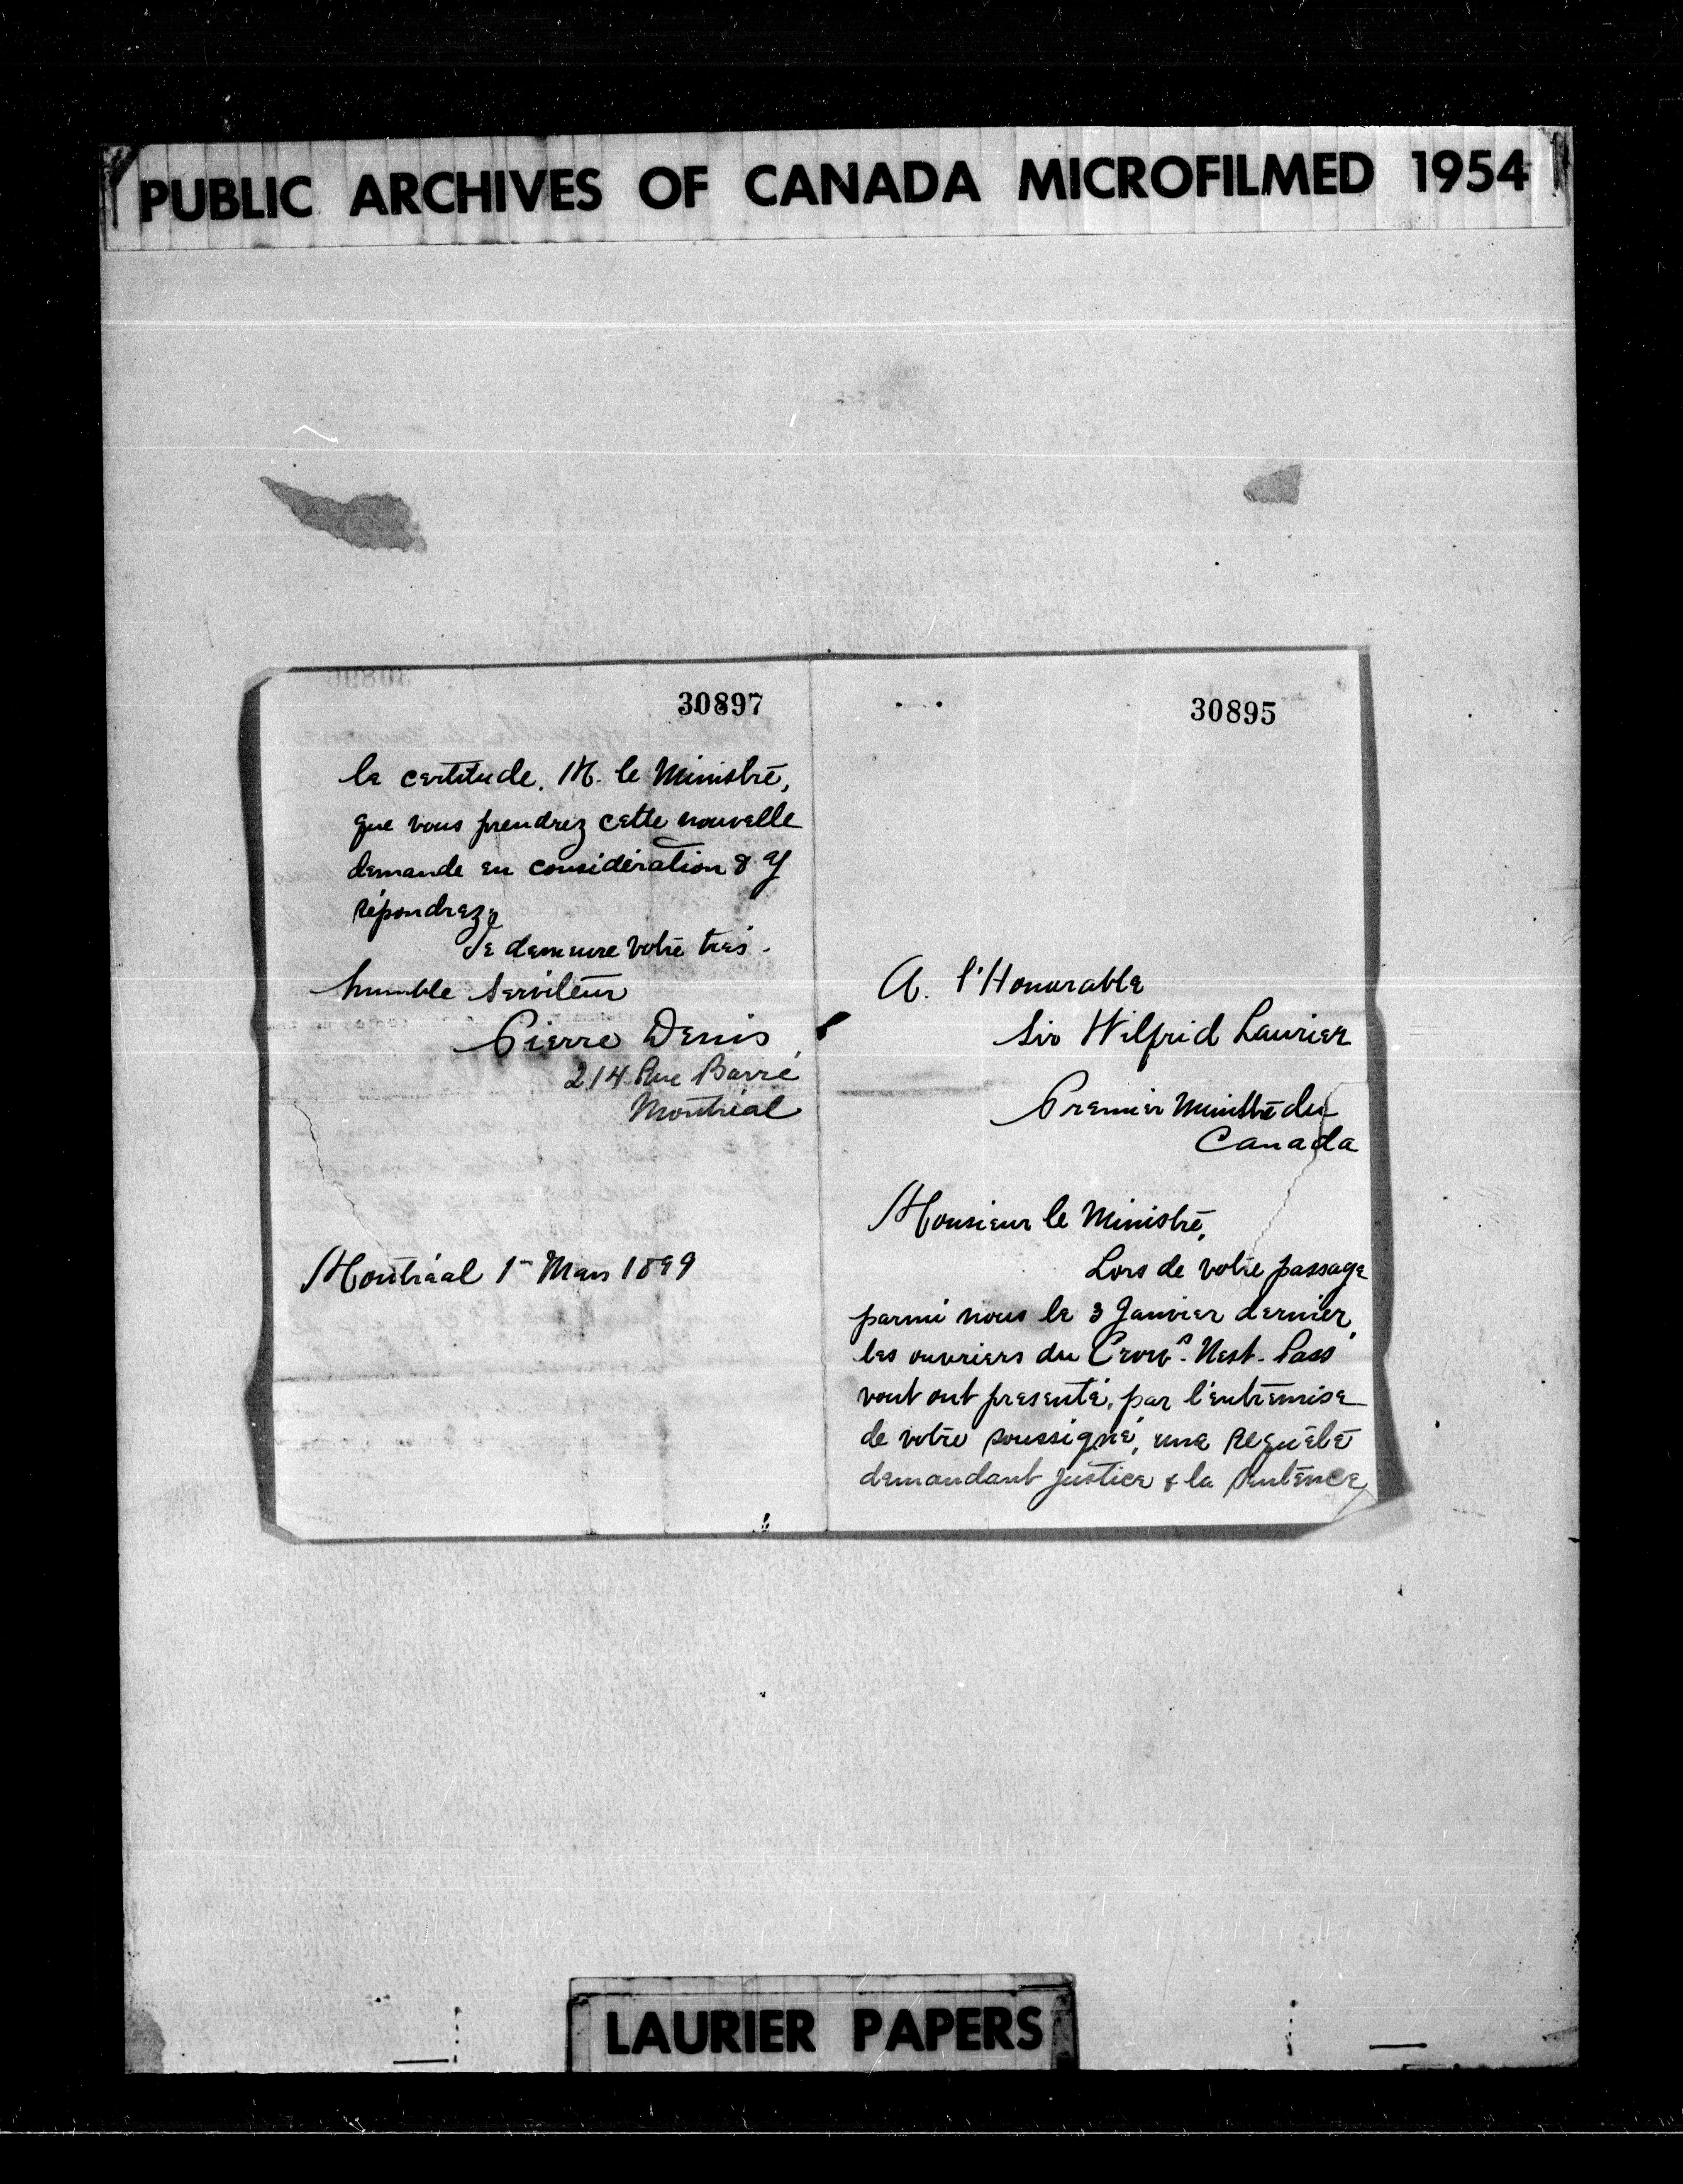 PUBLIC ARCHIVES OF CANADA MICROFILMED 1954
30897
la certitude. M. le Ministre,
que vous prendrez cette nouvelle
demande en considération & y
répondrez,
Je demeure votre très
humble serviteur
Pierre Denis
214 Rue Barré
Montréal
Montréal 1er Mars 1899
30895
A. l'Honorable
Sir Wilfrid Laurier
Premier Ministre du
Canada
Monsieur le Ministre,
Lors de votre passage
parmi nous le 3 Janvier dernier,
les ouvriers du Crow's Nest Pass
vout ont presenté, par l'entremise
de votre soussigné, une Requête
demandant justice & la Sentence
LAURIER PAPERS